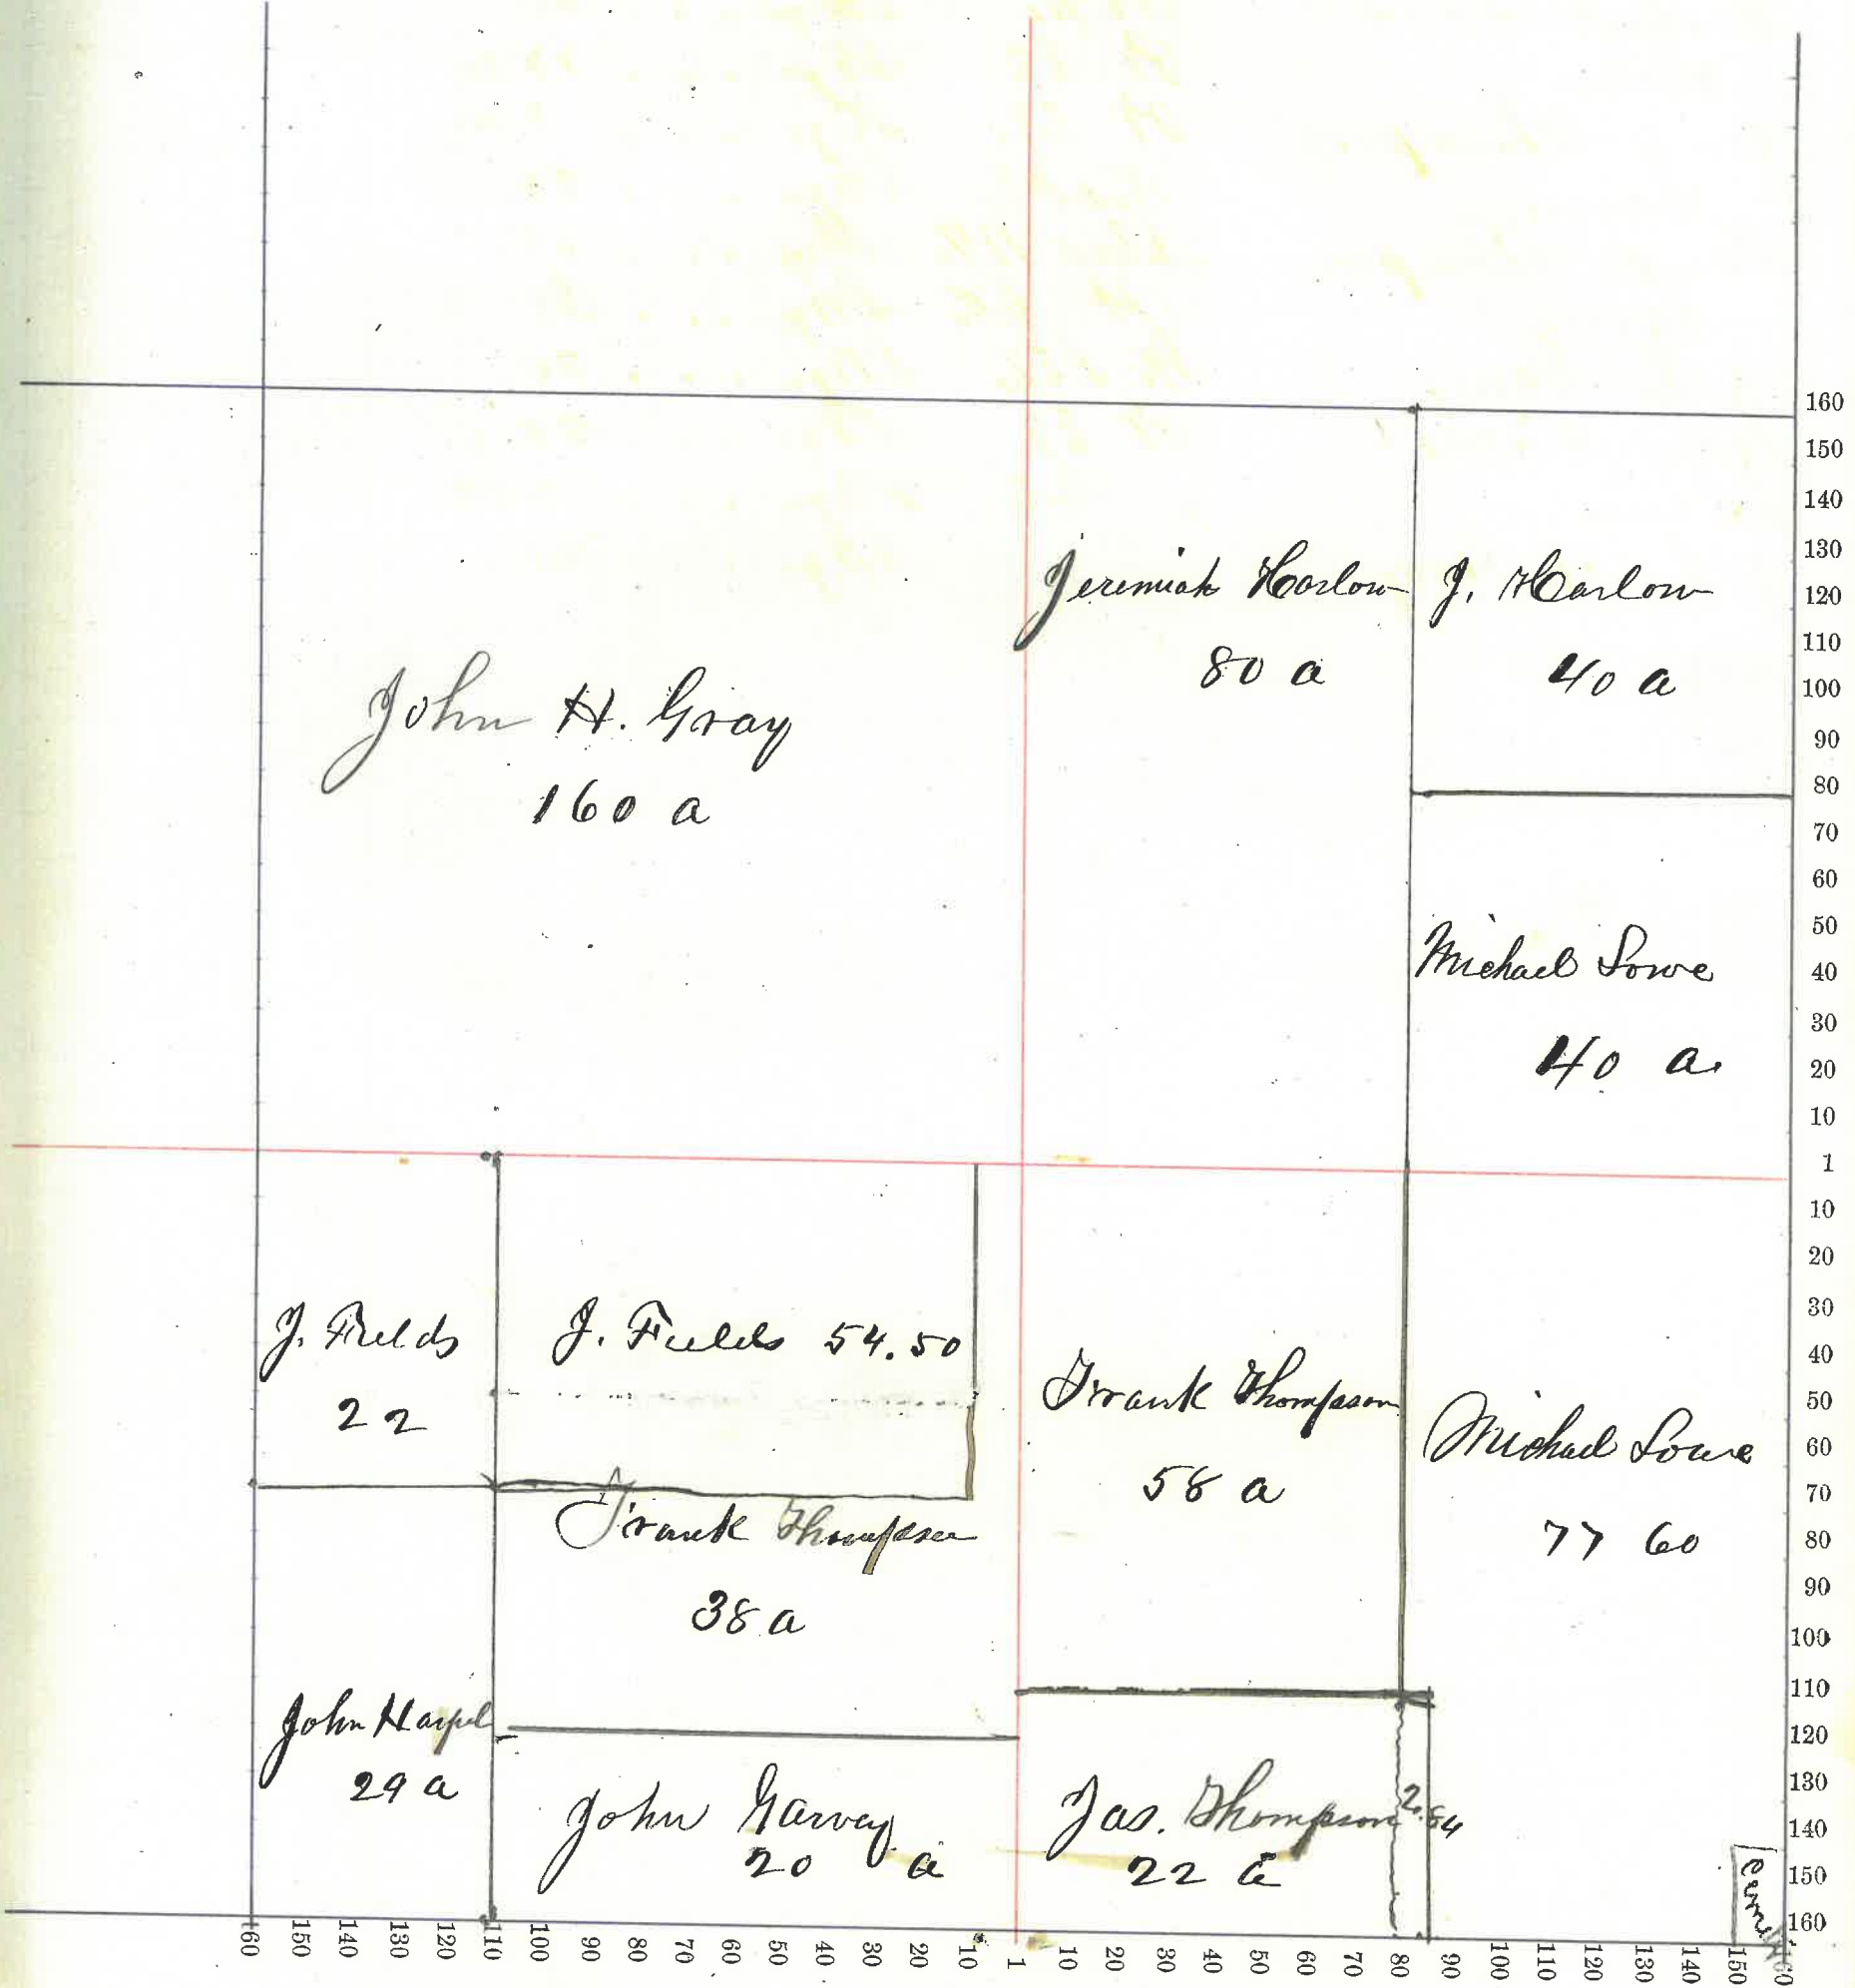 John H. Gray
160 a
Jeremiah Harlow
80 a
J. Harlow
40 a
Michael Lowe
40 a.
J. Fields
22
J. Fields 54.50
Frank Thompson
58 a
Michael Lowe
77 60
Frank Thompson
38 a
John Harpel
29 a
John Garvey
20 a
Jas. Thompson
22 a
160
150
140
130
120
110
100
90
80
70
60
50
40
30
20
10
1
10
20
30
40
50
60
70
80
90
100
110
120
130
140
150
160
160 150 140 130 120 110 100 90 80 70 60 50 40 30 20 10 1 10 20 30 40 50 60 70 80 90 100 110 120 130 140 150 160